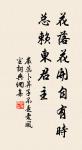 花落花開自有時
總賴東君主
嚴蕊卜算子不是愛風
塵詞典倜集